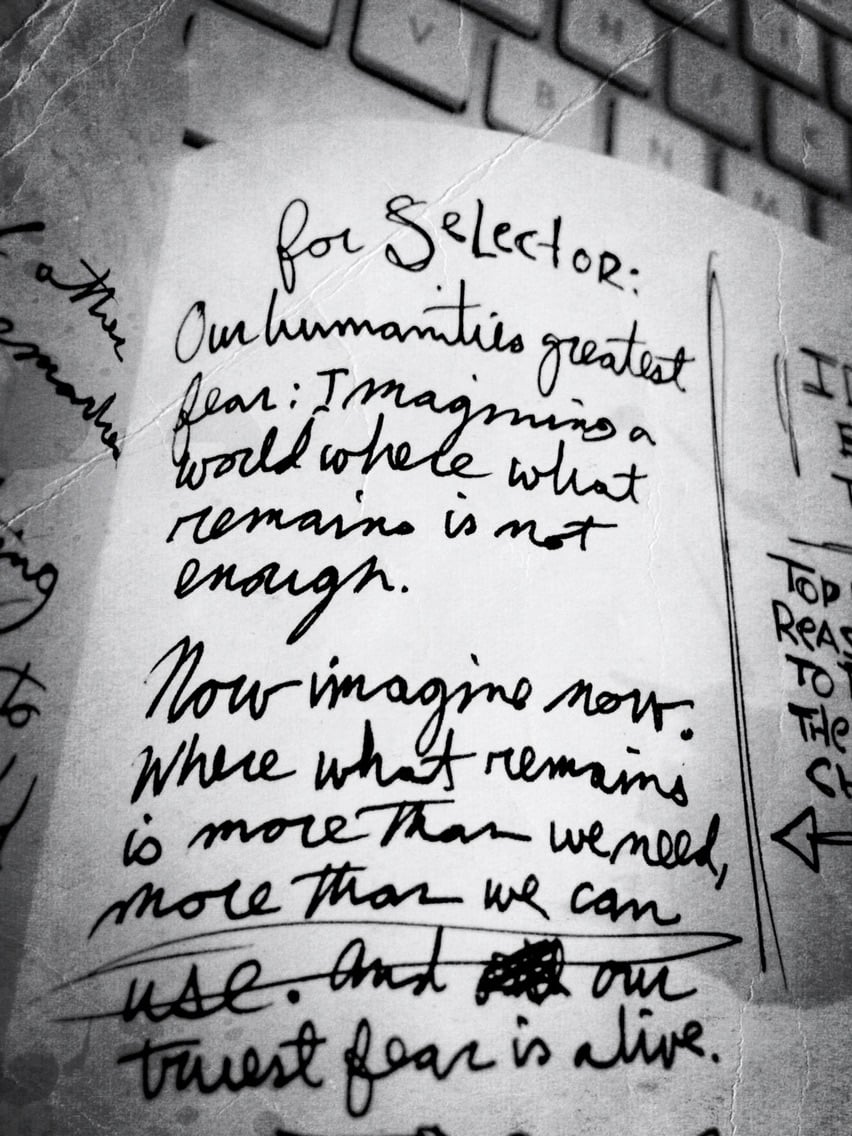 for Selector:
Our humanities greatest
fear: Imagining a
world where what
remains is not
enough.
Now imagine now.
Where what remains
is more than we need,
more than we can
use. And our
truest fear is alive.
other
to
TOP
REAS
TO T
THE
CH
V
B
H
N
J
M
K